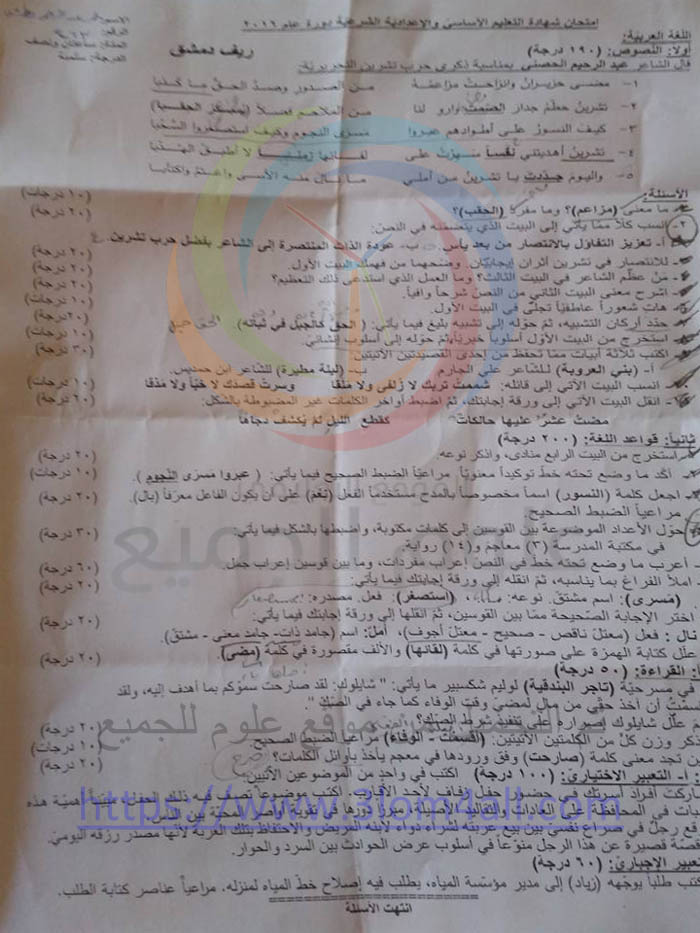 امتحان شهادة التعليم الأساسي والإعدادية الشرعية دورة عام ٢٠١٦
اللغة العربية:
أولاً: النصوص: (١٩٠ درجة) ريف دمشق
المدة: ساعتان ونصف
الدرجة: ستمئة
قال الشاعر عبد الرحيم الحصني بمناسبة ذكرى حرب تشرين التحريرية:
١- مضى حزيران وانزاحت مزاعمه من الصدور وصدّ الحقّ ما كذبا
٢- تشرين حطّم جدار الصمت وارو لنا من الملاحم فصلاً (الحقبا)
٣- كيف النسور على أملودهم عبروا مسرى النجوم وكيف استصغروا الشهبا
٤- تشرين أهديتني نفساً سيرت على لقائها لا أطيق
٥- واليوم جدّدت يا تشرين من أملي ما نال منه الأسى واغتمّ واكتأبا
الأسئلة:
ما معنى (مزاعم)؟ وما مفرد (الحقب)؟ (١٠ درجات)
٢- انسب كلاً ممّا يأتي إلى البيت الذي يتضمنه في النص: (٢٠ درجة)
أ- تعزيز التفاؤل بالانتصار من بعد يأس. ب- عودة الذات المنتصرة إلى الشاعر بفضل حرب تشرين.
للانتصار في تشرين أثران إيجابيّان. وضحهما من فهمك البيت الأول. (٢٠ درجة)
مَن عظّم الشاعر في البيت الثالث؟ وما العمل الذي استدعى ذلك التعظيم؟ (٢٠ درجة)
اشرح معنى البيت الثاني من النصّ شرحاً وافياً. (٢٠ درجة)
هات شعوراً عاطفيّاً تجلّى في البيت الأول. (١٠ درجات)
حدّد أركان التشبيه، ثمّ حوّله إلى تشبيه بليغ فيما يأتي: (الحقّ كالجبل في ثباته). (٢٠ درجة)
استخرج من البيت الأول أسلوباً خبريّاً، ثمّ حوّله إلى أسلوب إنشائيّ. (١٠ درجات)
اكتب ثلاثة أبيات ممّا تحفظ من إحدى القصيدتين الآتيتين: (٣٠ درجة)
أ- (بني العروبة) للشاعر علي الجارم ب- (ليلة مطيرة) للشاعر ابن حمديس.
انسب البيت الآتي إلى قائله: شممت تربك لا زلفى ولا ملقا وسرت قصدك لا خبّاً ولا مذقا (١٠ درجات)
انقل البيت الآتي إلى ورقة إجابتك، ثمّ اضبط أواخر الكلمات غير المضبوطة بالشكل: (٢٠ درجة)
مضتْ عشرٌ عليها حالكاتٌ كقطع الليل لمْ يُكشف دجاها
ثانياً: قواعد اللغة: (٢٠٠ درجة)
استخرج من البيت الرابع منادى، واذكر نوعه. (٢٠ درجة)
أكّد ما وضع تحته خطّ توكيداً معنويّاً مراعياً الضبط الصحيح فيما يأتي: (عبروا مسرى النجوم). (١٠ درجات)
اجعل كلمة (النسور) اسماً مخصوصاً بالمدح مستخدماً الفعل (نعم) على أن يكون الفاعل معرّفاً (بال)، (٢٠ درجة)
مراعياً الضبط الصحيح.
حوّل الأعداد الموضوعة بين القوسين إلى كلمات مكتوبة، واضبطها بالشكل فيما يأتي: (٣٠ درجة)
في مكتبة المدرسة (٣) معاجم و(١٤) رواية.
- اعرب ما وضع تحته خطّ في النصّ إعراب مفردات، وما بين قوسين إعراب جمل. (٦٠ درجة)
املأ الفراغ بما يناسبه، ثمّ انقله إلى ورقة إجابتك فيما يأتي: (٢٠ درجة)
(مسرى): اسم مشتق. نوعه: ، (استصغر): فعل. مصدره:
اختر الإجابة الصّحيحة ممّا بين القوسين، ثمّ انقلها إلى ورقة إجابتك فيما يأتي: (٢٠ درجة)
نال: فعل (معتلّ ناقص - صحيح - معتلّ أجوف)، أمل: اسم (جامد ذات - جامد معنى - مشتق).
علّل كتابة الهمزة على صورتها في كلمة (لقائها) والألف مقصورة في كلمة (مضى). (٢٠ درجة)
القراءة: (٥٠ درجة)
في مسرحيّة (تاجر البندقية) لوليم شكسبير ما يأتي: " شايلوك: لقد صارحت سموّكم بما أهدف إليه، ولقد
أقسمت أن آخذ حقّي من مال لمضيّ وقت الوفاء كما جاء في الصّكّ ".
علّل شايلوك إصراره على تنفيذ شرط الصّكّ؟ (٢٠ درجة)
اذكر وزن كلّ من الكلمتين الآتيتين: (أقسمت - الوفاء) مراعياً الضبط الصحيح. (٢٠ درجة)
أين تجد معنى كلمة (صارحت) وفق ورودها في معجم يأخذ بأوائل الكلمات؟ (١٠ درجات)
التعبير الاختياريّ: (١٠٠ درجة) اكتب في واحد من الموضوعين الآتيين:
شاركت أفراد أسرتك في حضور حفل زفاف لأحد الأقارب. اكتب موضوعاً تصف فيه ذلك الحفل، مبيّناً أهميّة هذه
في المحافظة على العادات والتقاليد الأصيلة، مبرزاً دورها في تقوية أواصر المحبّة بين الناس.
رجل في صراع نفسيّ بين بيع عربته لشراء دواء لابنه المريض والاحتفاظ بتلك العربة لأنّها مصدر رزقه اليوميّ.
قصّة قصيرة عن هذا الرجل منوّعاً في أسلوب عرض الحوادث بين السرد والحوار.
التعبير الإجباريّ: (٦٠ درجة)
اكتب طلباً يوجّهه (زياد) إلى مدير مؤسّسة المياه، يطلب فيه إصلاح خطّ المياه لمنزله، مراعياً عناصر كتابة الطلب.
انتهت الأسئلة
موقع علوم للجميع
www.3lom4all.com